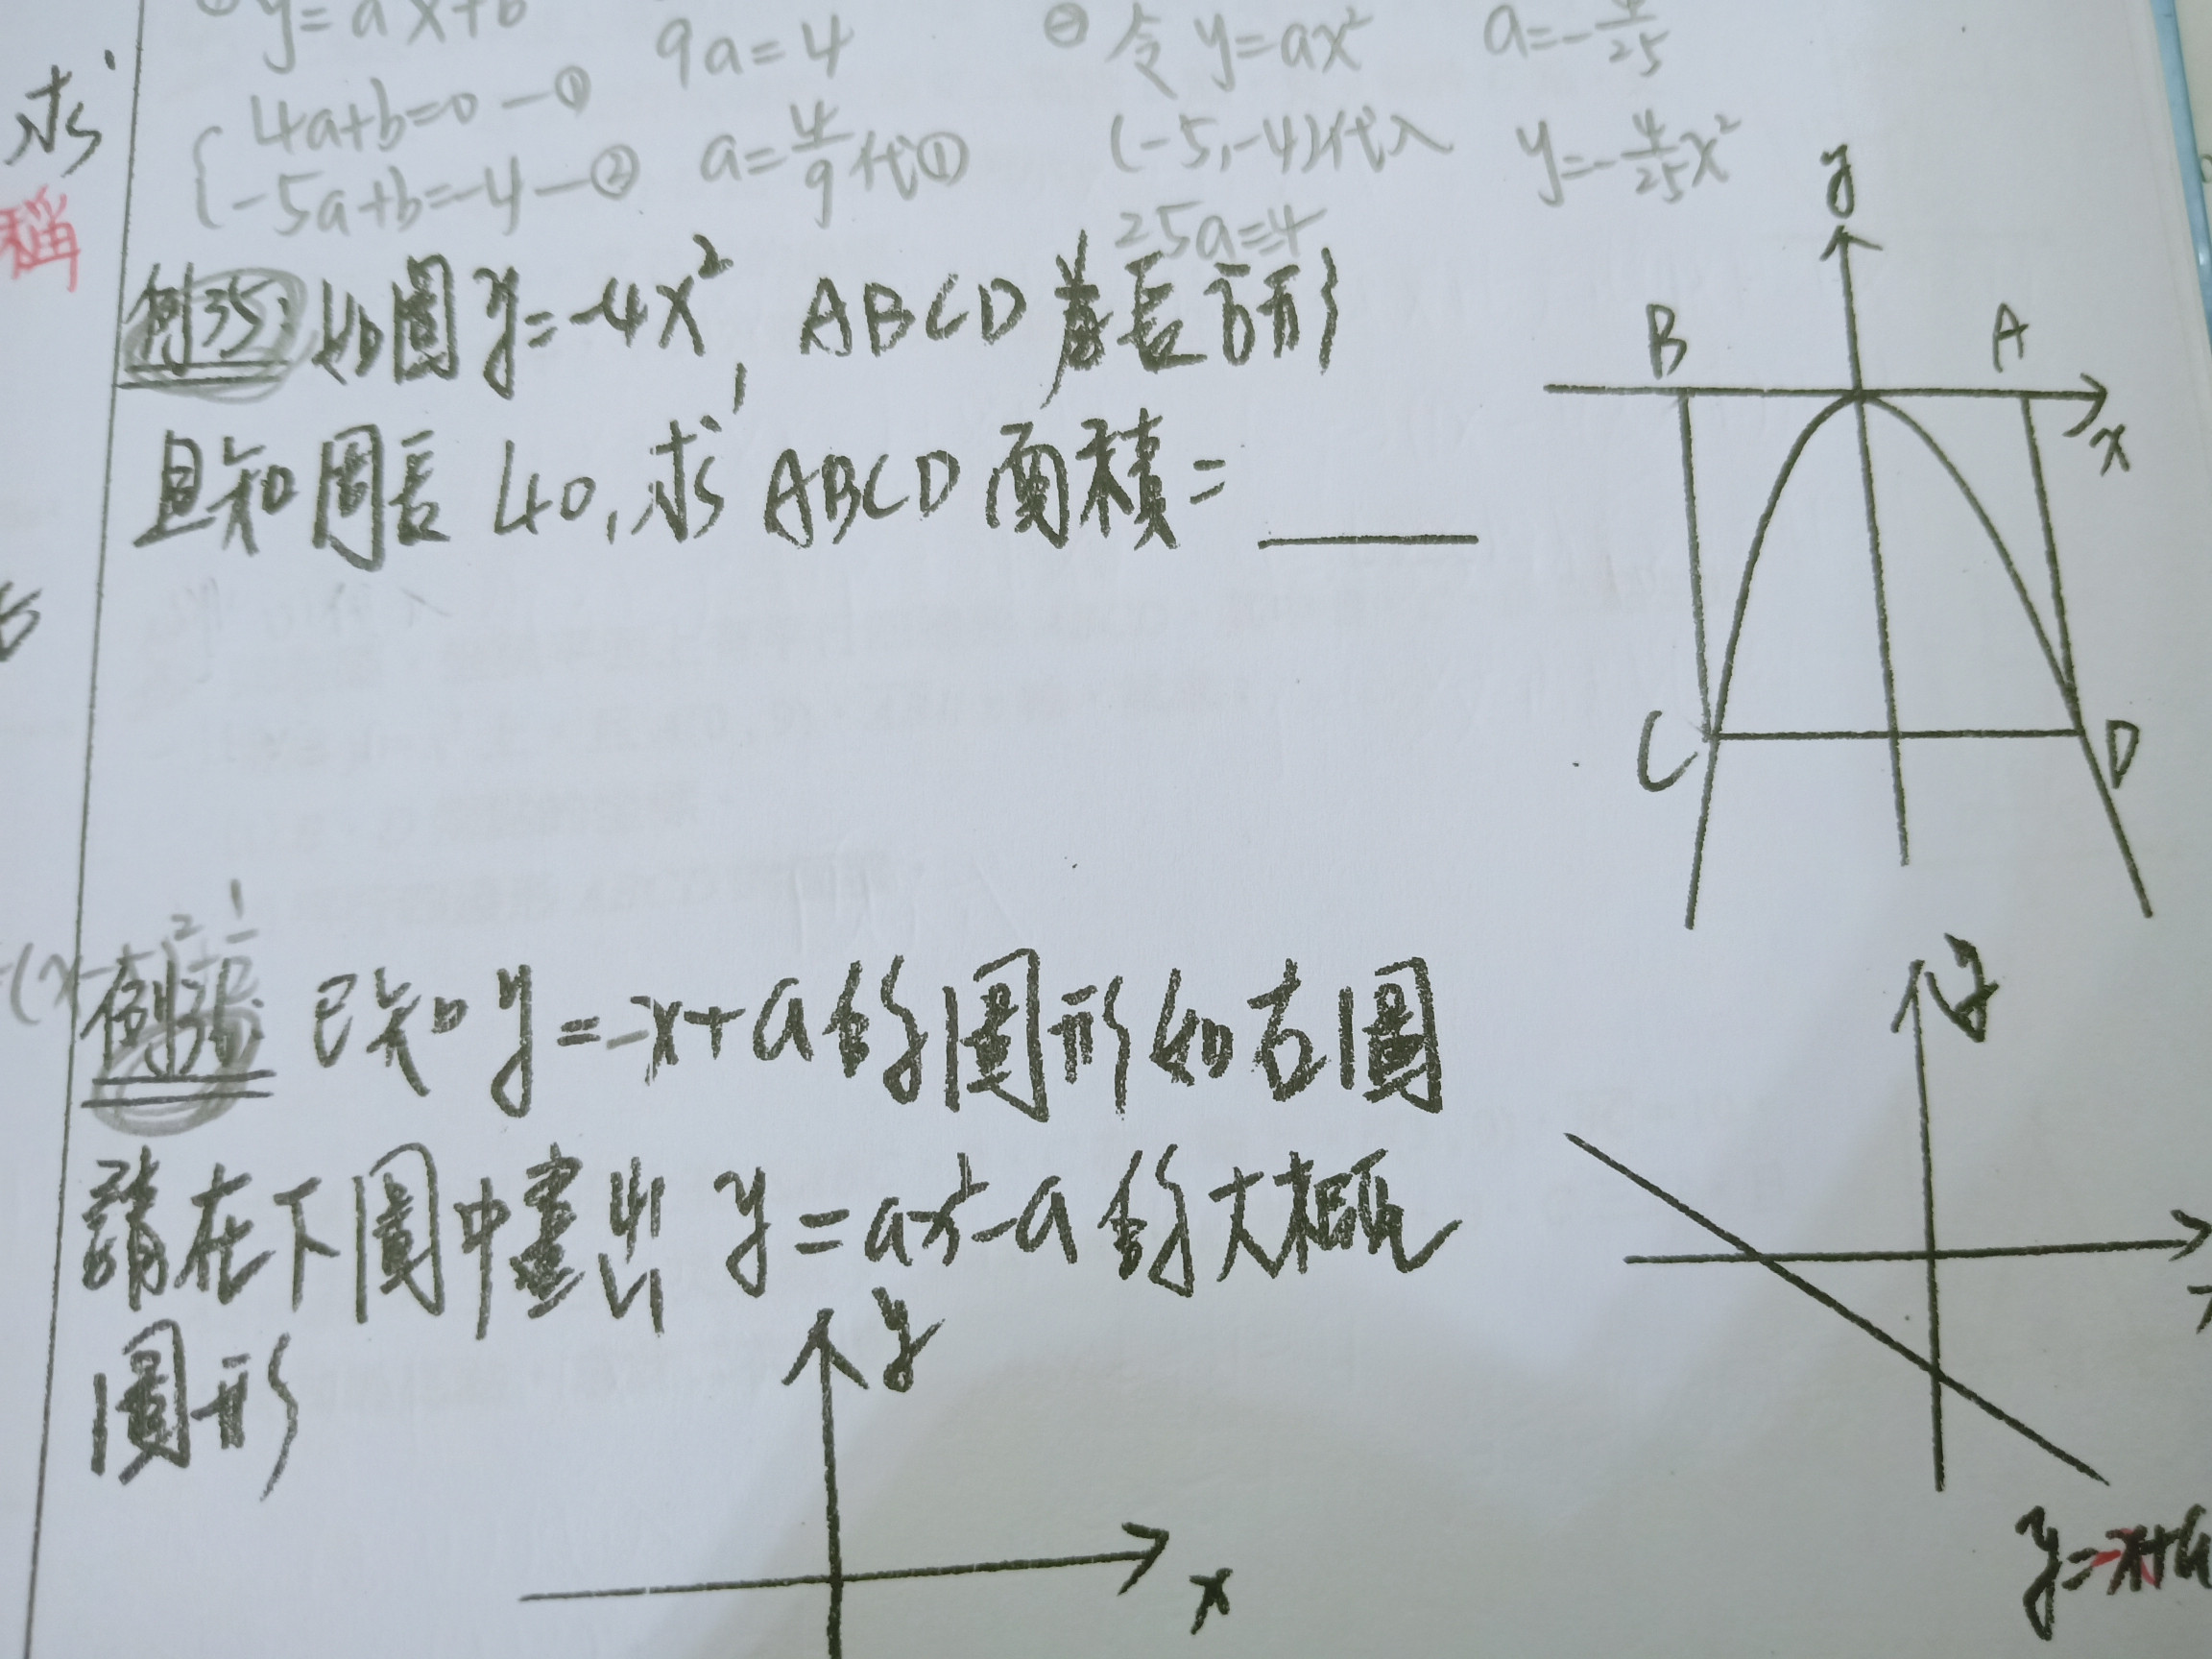 y=ax+b
9a=4
令 y=ax²
a=-4/25
4a+b=0—①
-5a+b=-4—②
a=4/9代①
(-5,-4)代入
25a=-4
y=-4/25x²
求
稱
例35: 如圖 y=-4x², ABCD為長方形
且知周長 40, 求 ABCD 面積=
y
B
A
x
C
D
已知 y=-x+a 的圖形如右圖
請在下圖中畫出 y=ax²-a 的大概
圖形
y
x
y
y=-x+a